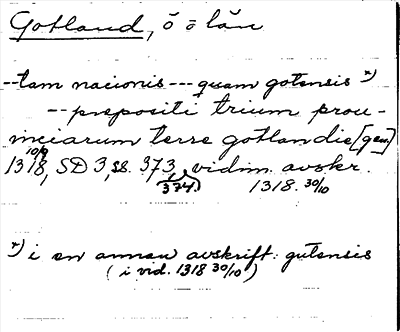 Gotland, ö o län
--tam nacionis --- quam gotensis *)
-- prepositi trium prou-
inciarum terre gotlandie [gen.]
1318 10/9, SD 3, ss. 373, vidim. avskr.
374) 1318. 30/10
*) i en annan avskrift: gutensis
( i vid. 1318 30/10 )